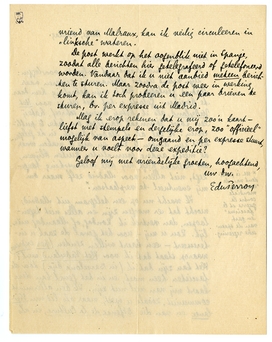 vriend van Malraux, kan ik veilig circuleeren in
"linksche" wateren.
De post werkt op het oogenblik niet in Spanje,
zoodat alle berichten hier getelegrafeerd of getelefoneerd
worden. Vandaar dat ik u niet aanbied meteen berich-
ten te sturen. Maar zoodra de post weer in werking
komt, kan ik toch probeeren u een paar brieven te
sturen, bv. per expresse uit Madrid.
Mag ik erop rekenen dat u mij zoo'n kaart-
liefst met stempels en dergelijke erop, zoo "officieel"
mogelijk van aspect - omgaand en per expresse stuurt,
wanneer u voelt voor deze expeditie?
Geloof mij met vriendelijke groeten, hoogachtend,
uw dw.
EduPerron